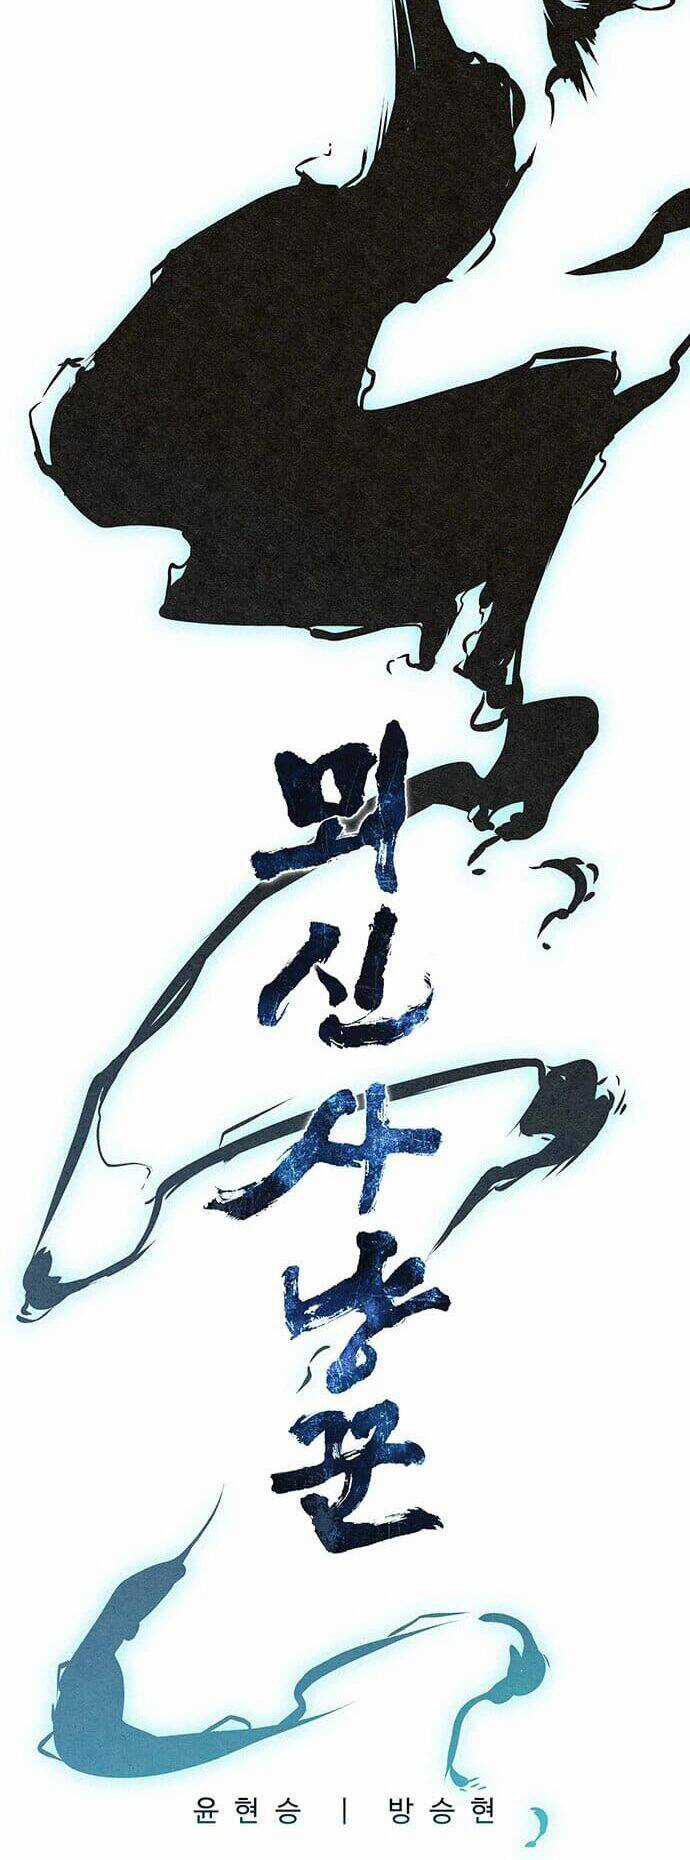 뫼신사냥꾼
윤현승 | 방승현